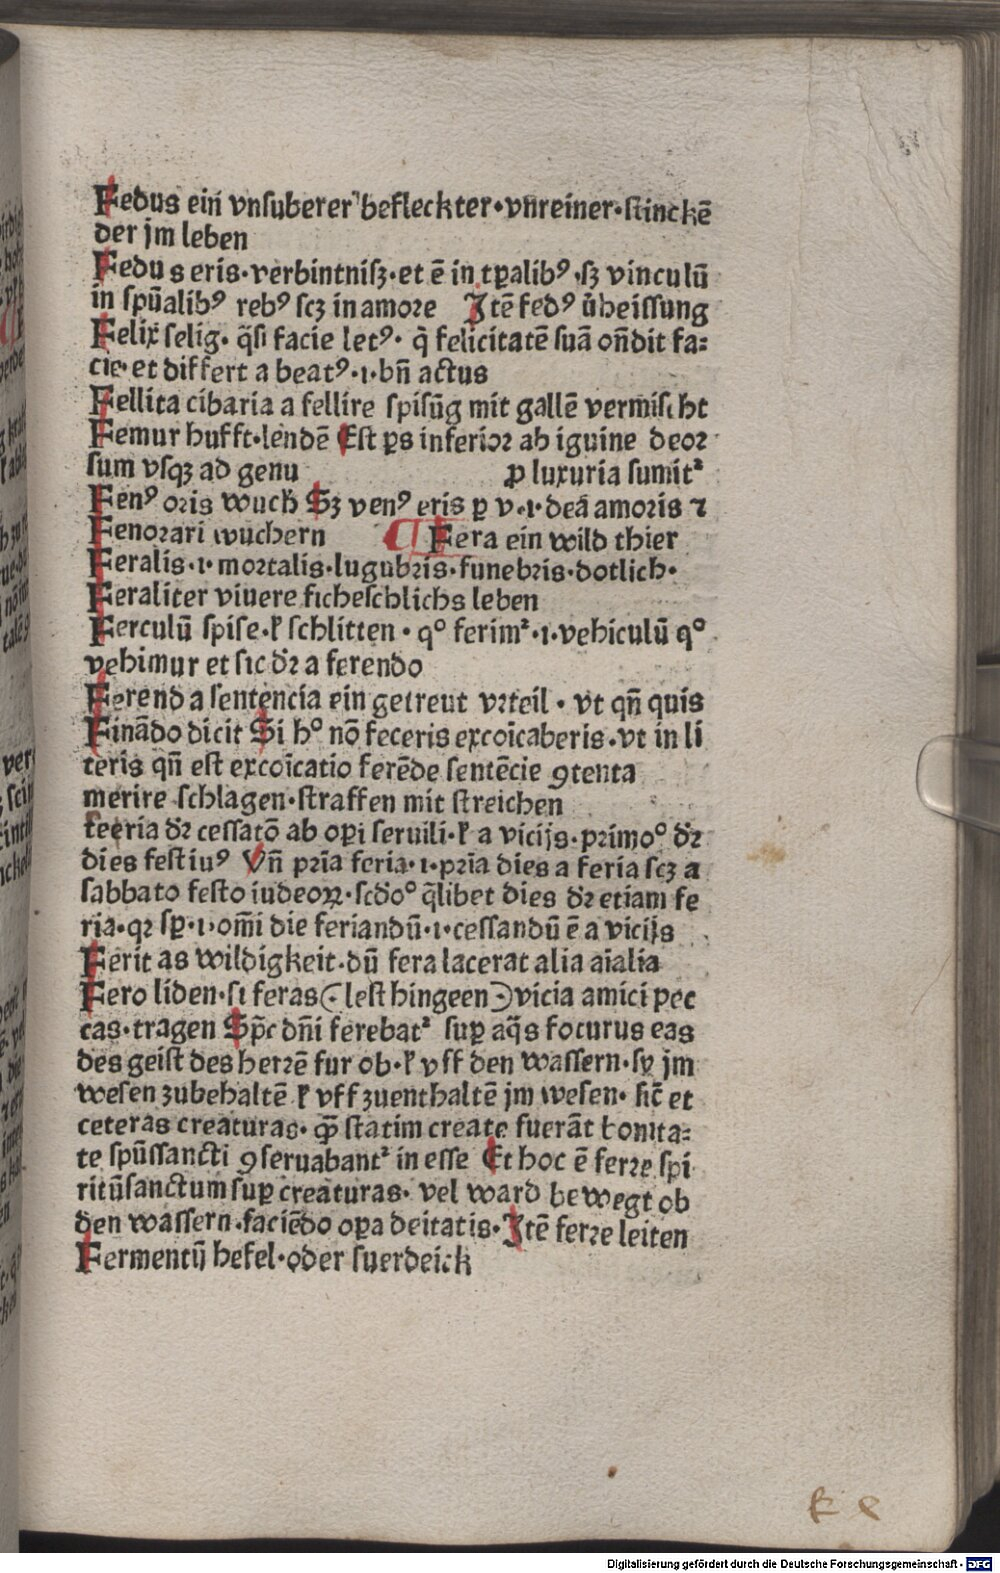 Fedus ein vnsuberer befleckter·vnreiner·stinckē
der jm leben
Fedus eris·verbintnisꝫ·et ē in tꝑalibꝰ·sꝫ vinculū
in spūalibꝰ rebꝰ scꝫ in amore Jtē fedꝰ v̓heissung
Felix selig·q̄si facie letꝰ·q̇ felicitatē suā on̄dit fa⸗
cie·et differt a beatꝰ·ı·bn̄ actus
Fellita cibaria a fellire spisūg mit gallē vermischt
Femur hufft·lendē Est ꝑs inferioꝛ ab iguine deoꝛ
sum vsqꝫ ad genu ꝓ luxuria sumitᷣ
Fenꝰ oꝛis wuch Sꝫ venꝰ eris ꝑ v·ı·deā amoꝛis ⁊
Fenoꝛari wuchern ¶ Fera ein wild thier
Feralis·ı·moꝛtalis·lugubꝛis·funebꝛis·dotlich·
Feraliter viuere ficheschlichs leben
Ferculū spise·ł schlitten·qͦ ferimᷣ·ı·vehiculū qͦ
vehimur et sic dꝛ̄ a ferendo
Ferenda sentencia ein getreut vꝛteil·vt qn̄ quis
Finādo dicit Si hͦ nō feceris excoīcaberis·vt in li
teris qn̄ est excoīcatio ferēde sentēcie ꝯtenta
merire schlagen·straffen mit streichen
feeria dꝛ̄ cessatō ab oꝑi seruili·ł a vicijs·pꝛimoͦ dꝛ̄
dies festiuꝰ Vn̄ pꝛīa feria·ı·pꝛīa dies a feria scꝫ a
sabbato festo iudeoꝝ·scd̄oͦ q̄libet dies dꝛ̄ etiam fe
ria·qꝛ sꝑ·ı·om̄i die feriandū·ı·cessandū ē a vicijs
Feritas wildigkeit·dū fera lacerat alia aīalia
Fero liden·si feras (·lest hingeen·) vicia amici pec
cas·tragen Sp̄c dn̄i ferebatᷣ suꝑ aq̄s focurus eas
des geist des herꝛē fur ob·ł vff den wassern·sy jm
wesen zubehaltē ł vff zuenthaltē jm wesen·sic̄ et
ceteras creaturas·qꝫ̄ statim create fuerāt bonita⸗
te spūssancti ꝯseruabantᷣ in esse Et hoc ē ferꝛe spi
ritūsanctum suꝑ creaturas·vel ward bewegt ob
den wassern·faciēdo oꝑa deitatis·Jtē ferꝛe leiten
Fermentū hefel·oder suerdeick
k e
Digitalisierung gefördert durch die Deutsche Forschungsgemeinschaft - DFG